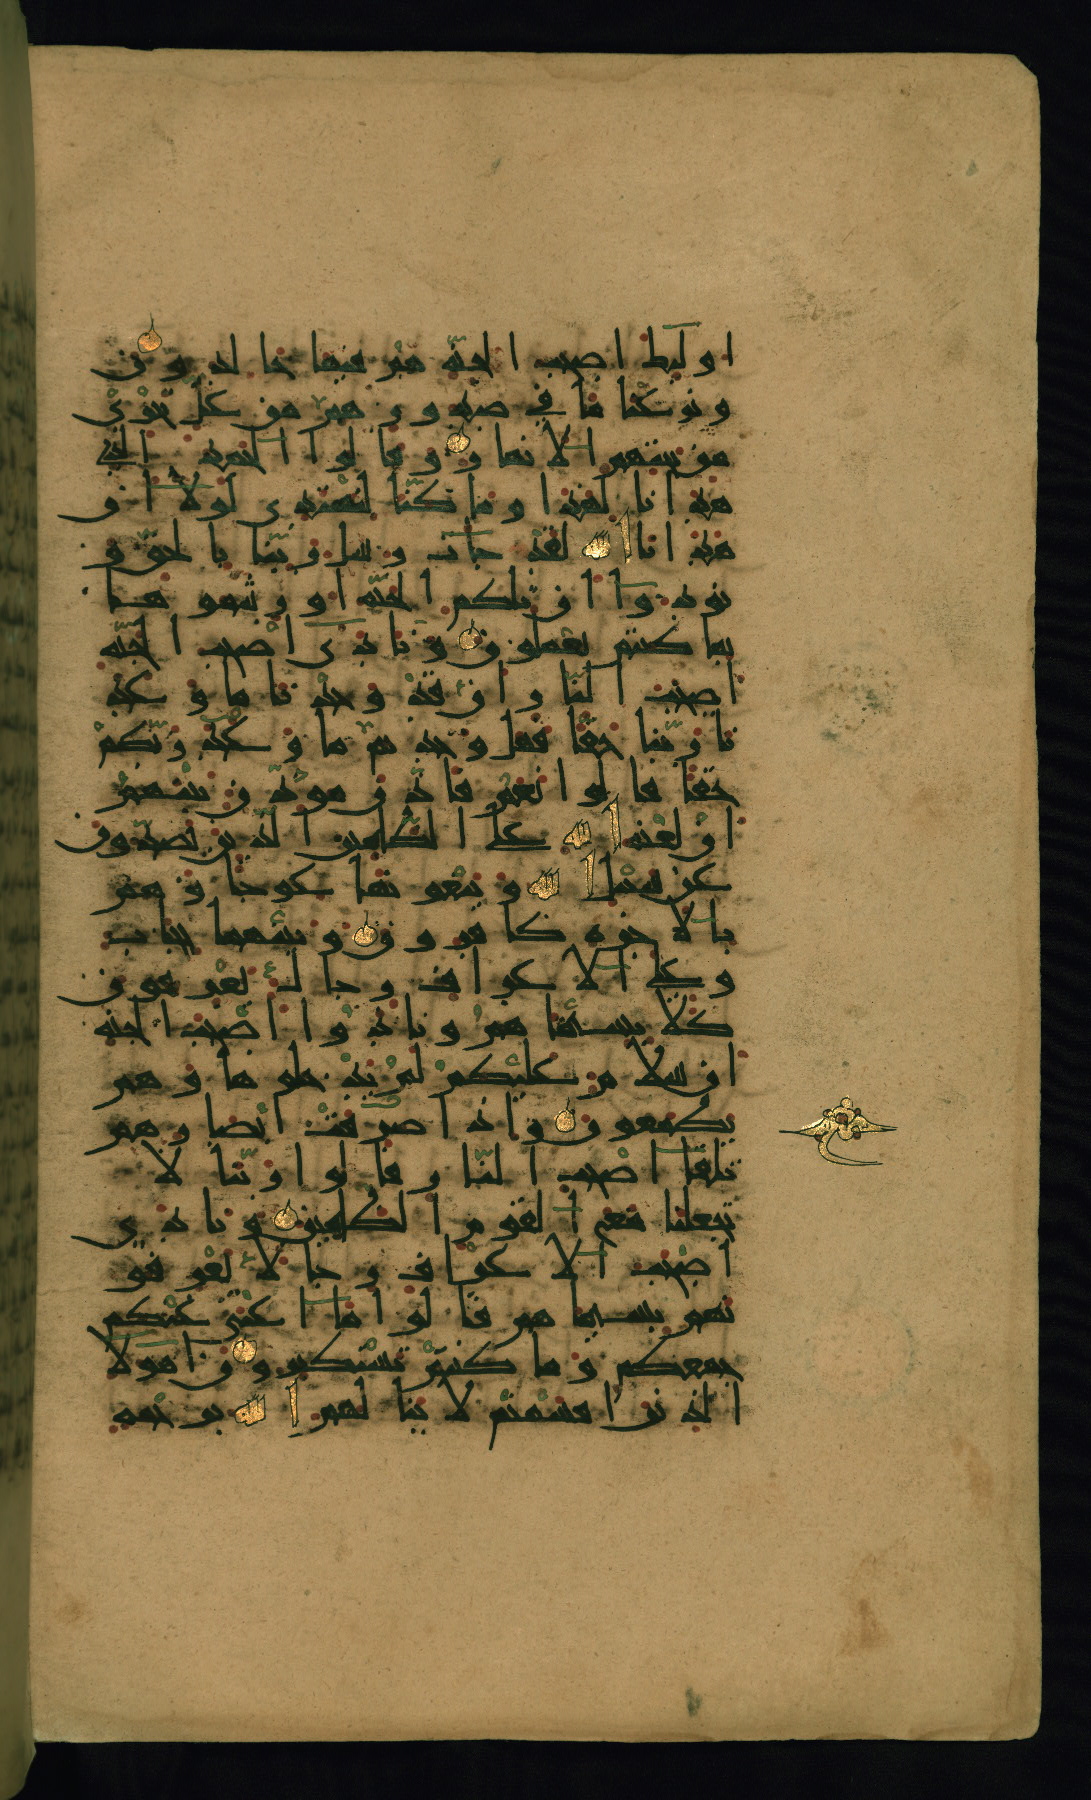 اولئك اصحب الجنة هم فيها خالدون
ونزعنا ما في صدورهم من غل تجري
من تحتهم الانهار وقالوا الحمد لله الذي
هدانا لهذا وما كنا لنهتدي لولا ان
هدانا الله لقد جات رسل ربنا بالحق و
نودوا ان تلكم الجنة اورثتموها
بما كنتم تعملون ونادى اصحب الجنة
اصحب النار ان قد وجدنا ما وعد
نا ربنا حقا فهل وجدتم ما وعد ربكم
حقا قالوا نعم فاذن موذن بينهم
ان لعنة الله على الظلمين الذين يصدون
عن سبيل الله ويبغونها عوجا وهم
بالاخرة كافرون وبينهما حجاب
وعلى الاعراف رجال يعرفون
كلا بسيماهم ونادوا اصحب الجنة
ان سلام عليكم لم يدخلوها وهم
يطمعون واذا صرفت ابصارهم
تلقا اصحب النار قالوا ربنا لا
تجعلنا مع القوم الظلمين ونادى
اصحب الاعراف رجالا يعرفو
نهم بسيماهم قالوا ما اغنى عنكم
جمعكم وما كنتم تستكبرون اهولا
الذين اقسمتم لا ينالهم الله برحمة